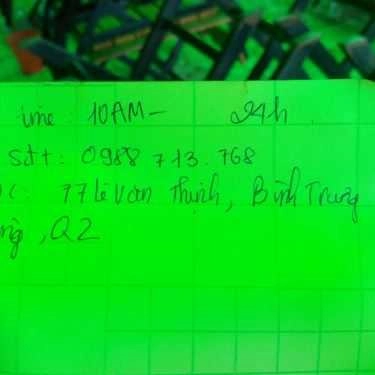 ime: 10AM - 24h
sđt: 0988 713.768
C: 77 Lê Văn Thịnh, Bình Trưng
ng, Q2